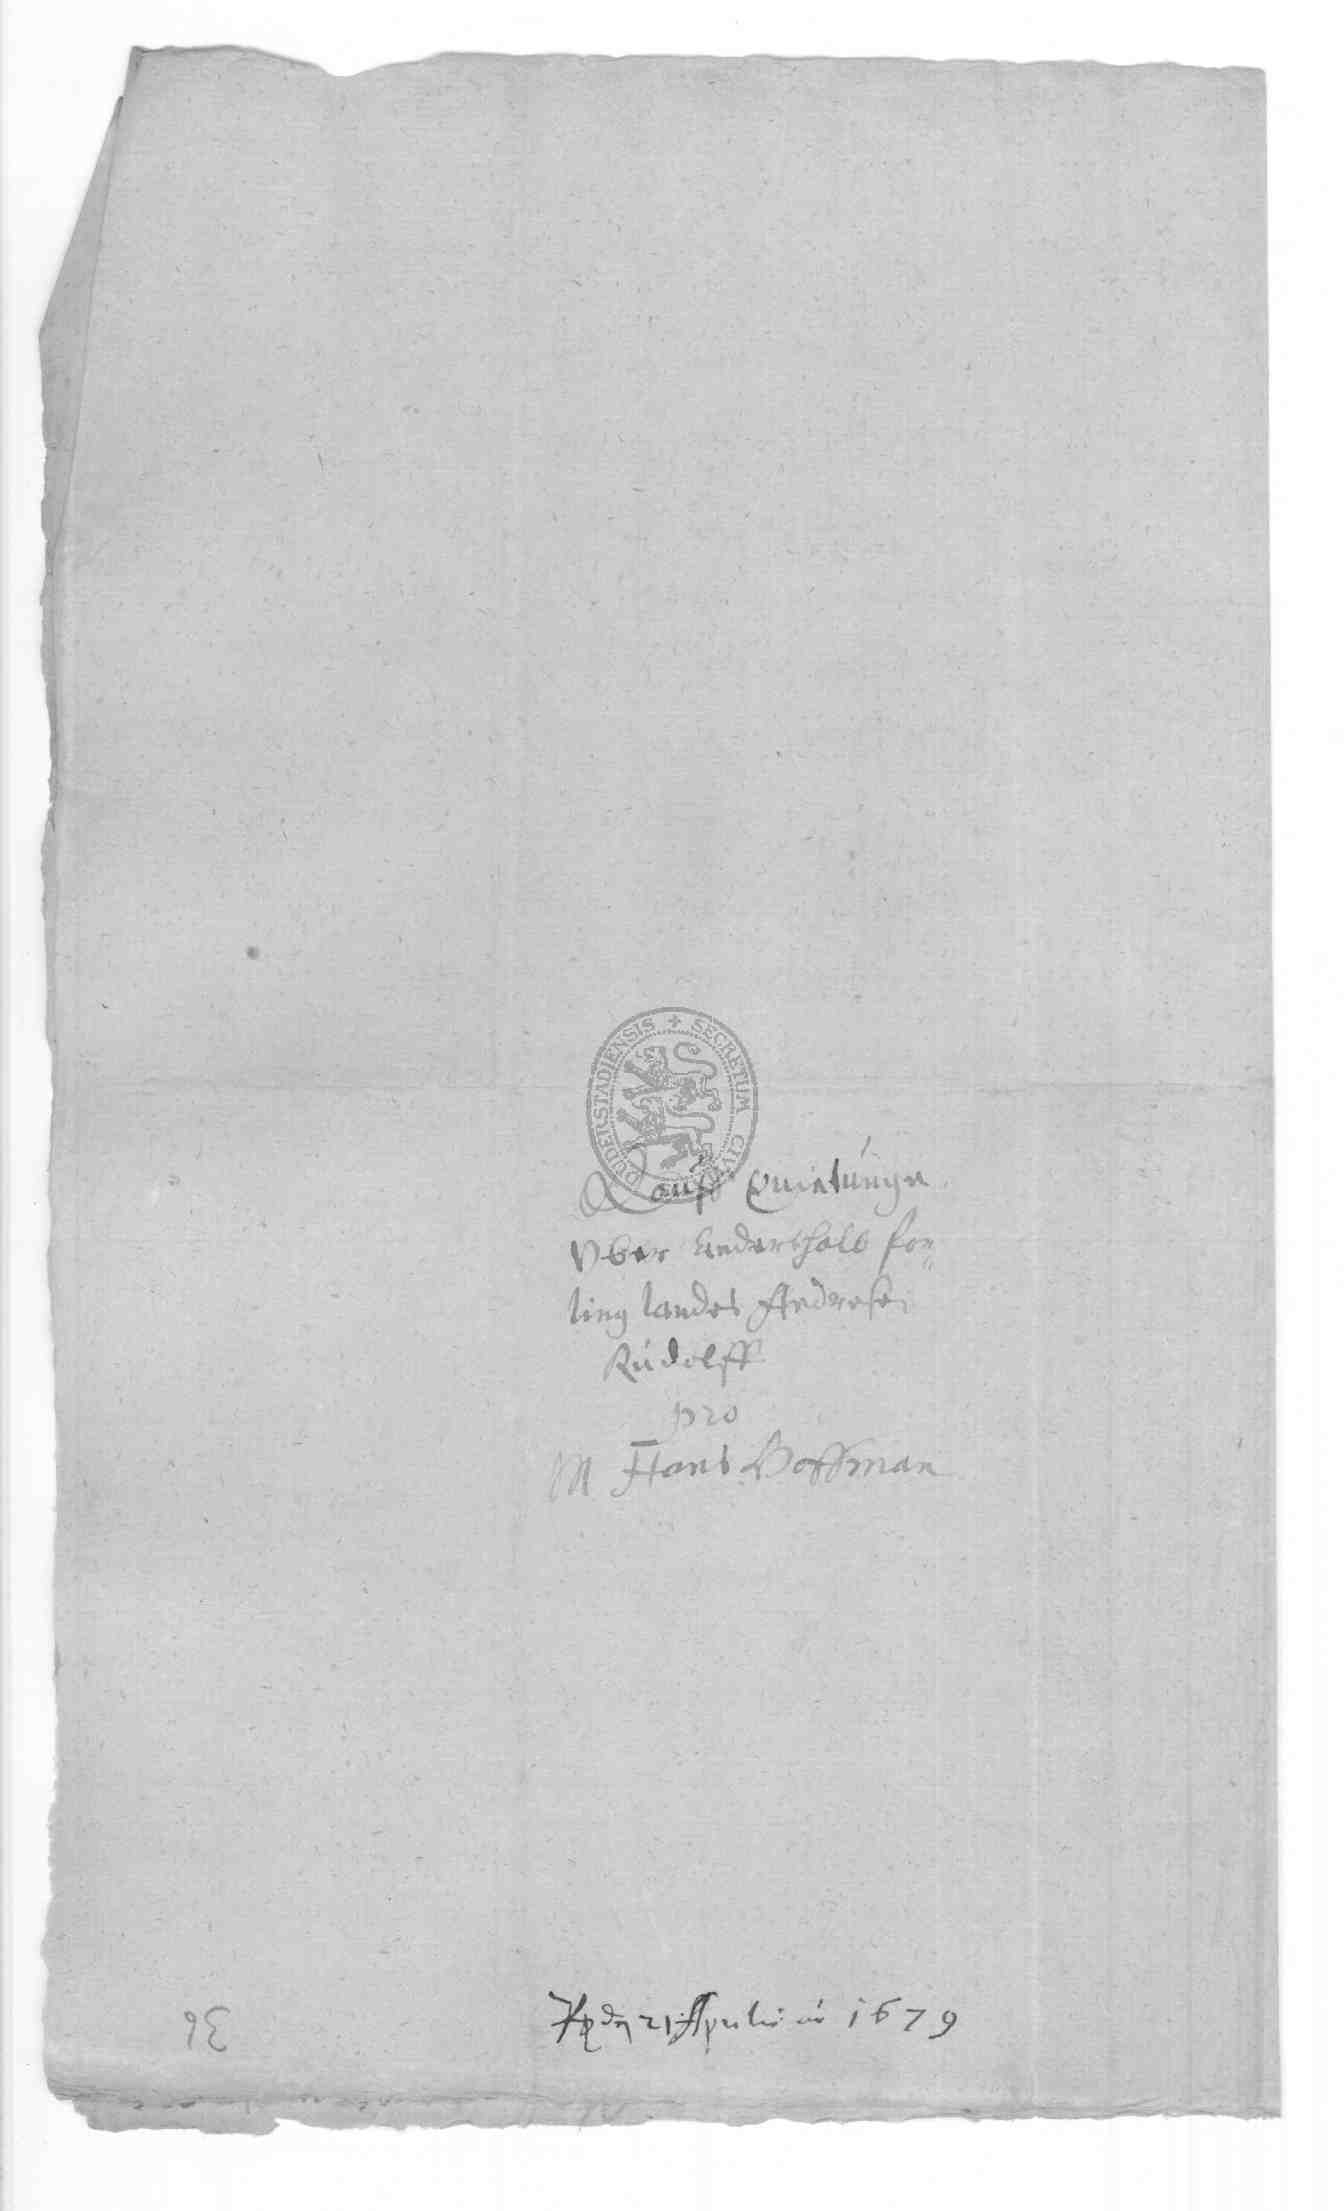 SECRETUM CIVI DUDERSTADIENSIS
Kauff Quietunge
Vber Anderthalb for„
ling landes Andresen
Rudolff
pro
M Hans Hoffman
dn 21 Aprilis ao 1679
36